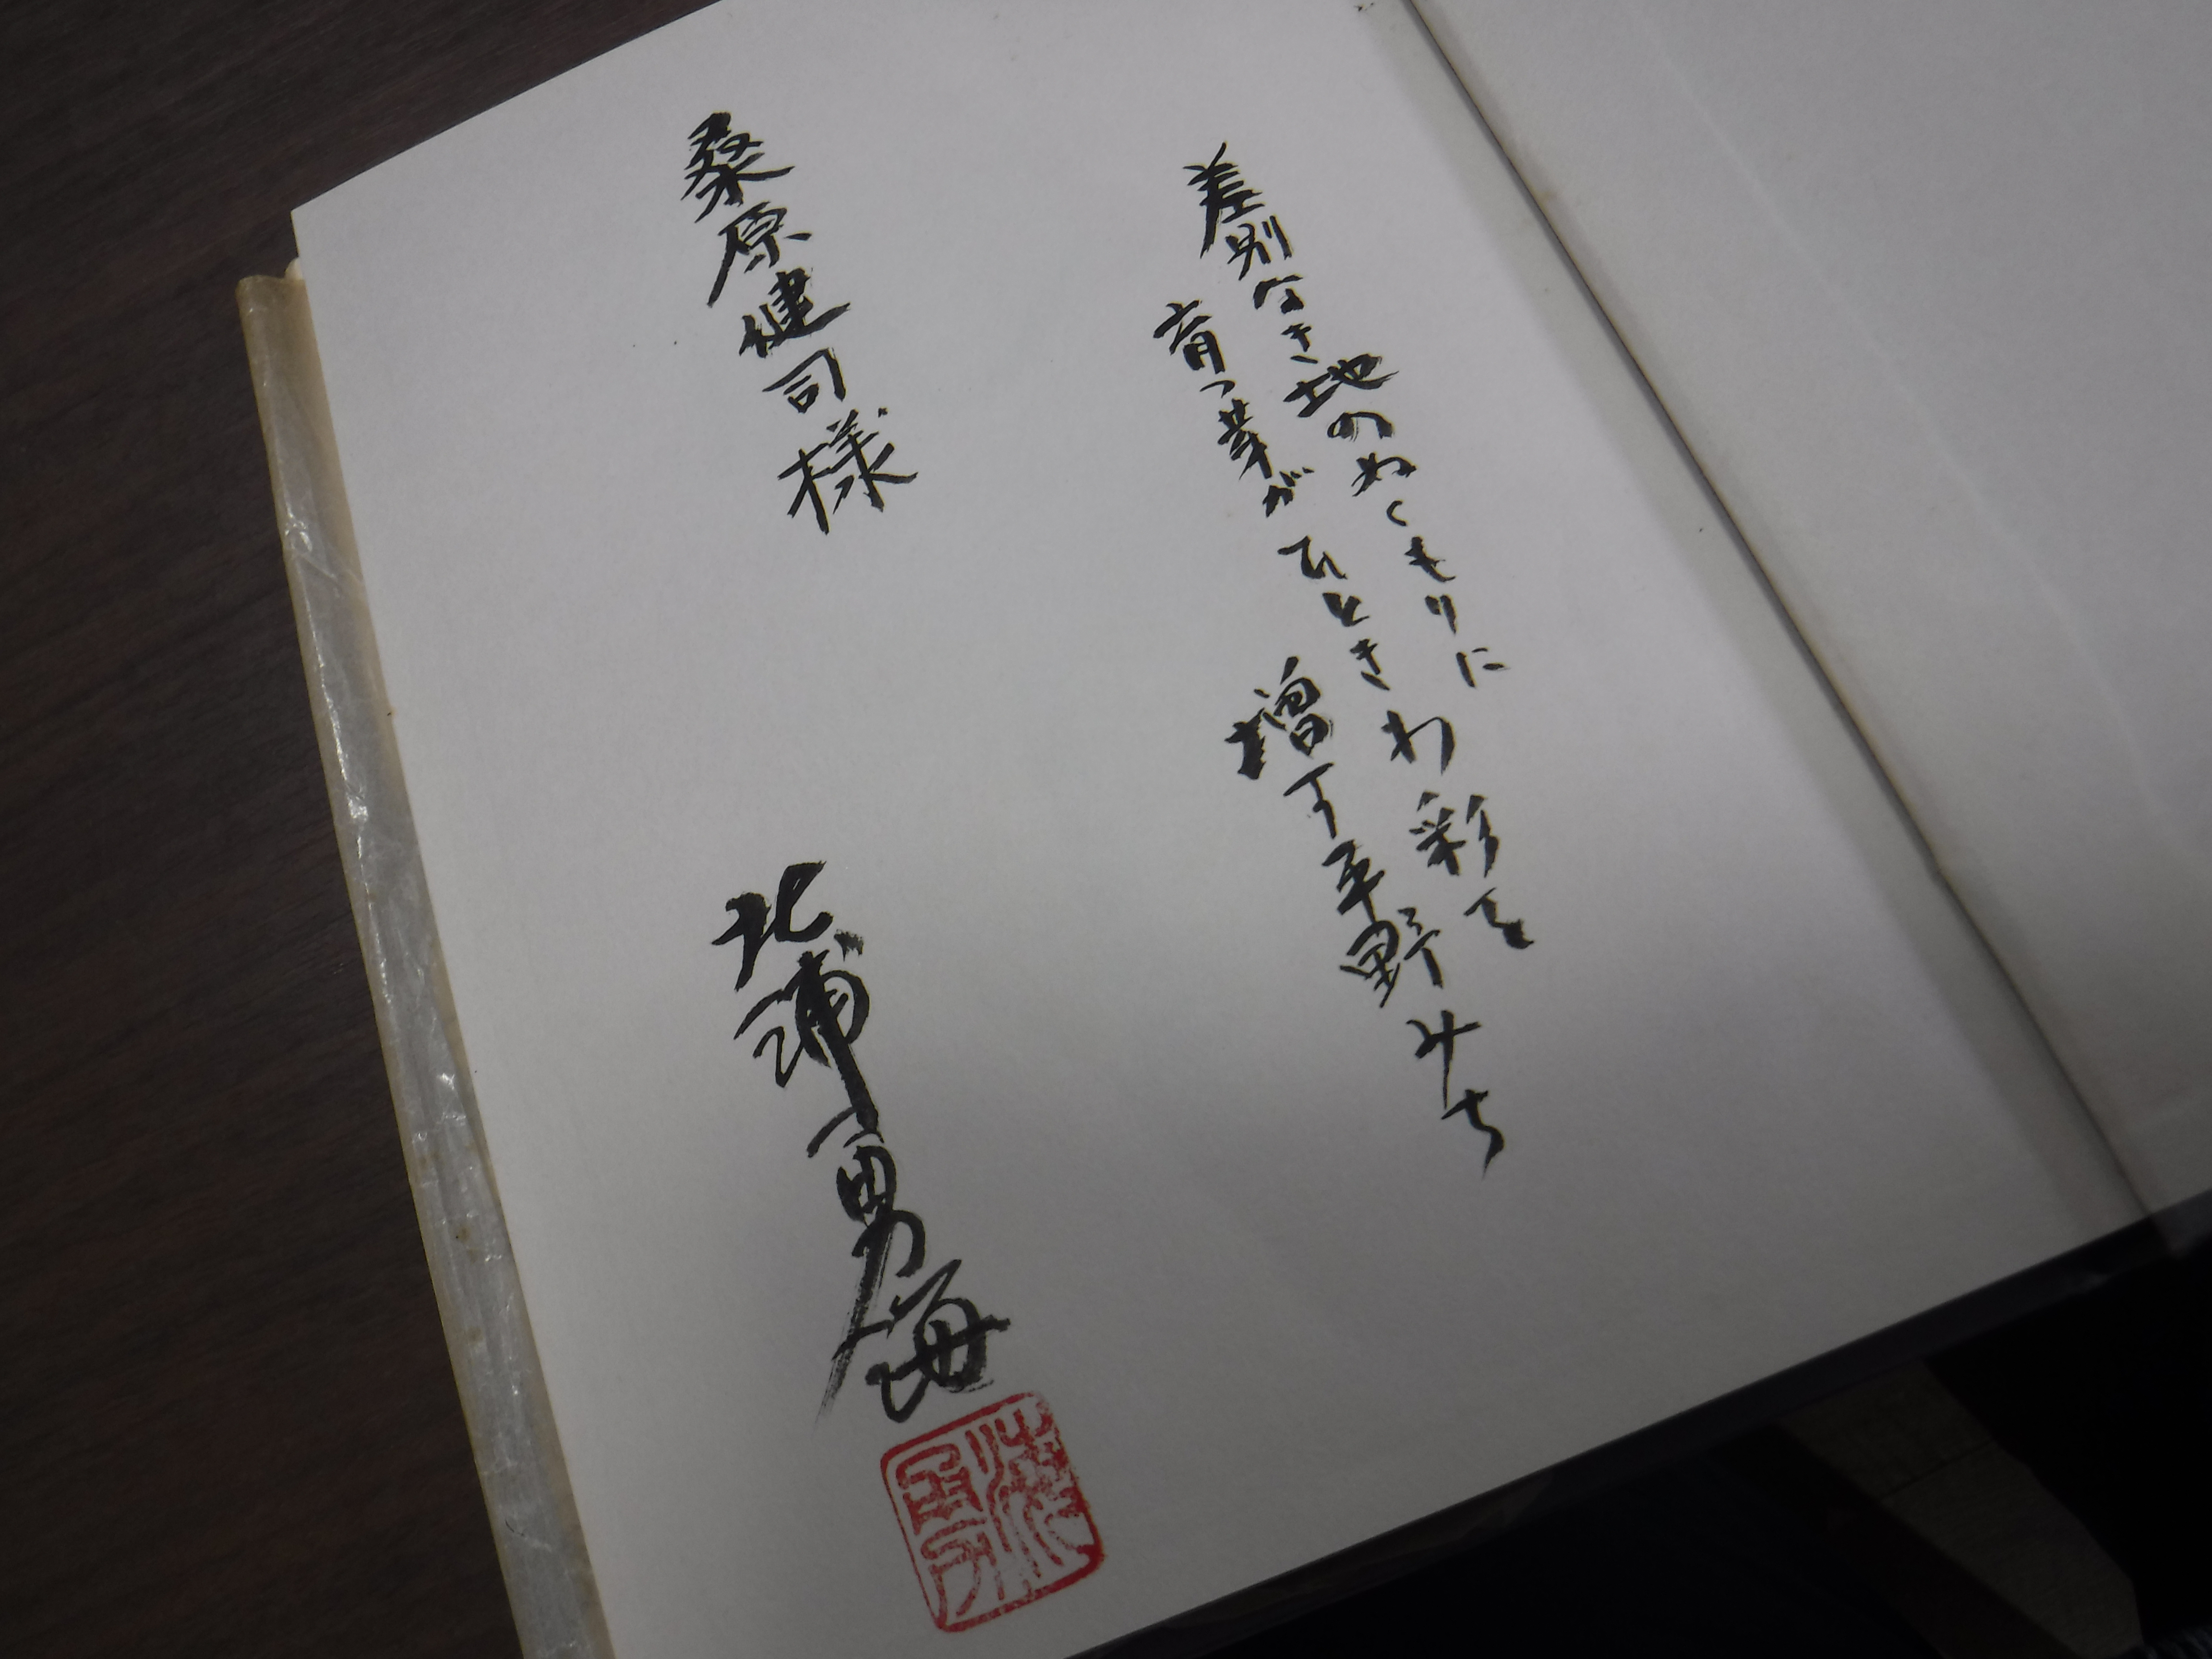 差別なき地のぬくもりに
育つ芽がひときわ彩を
増す平野みち
桑原健司様
北浦男